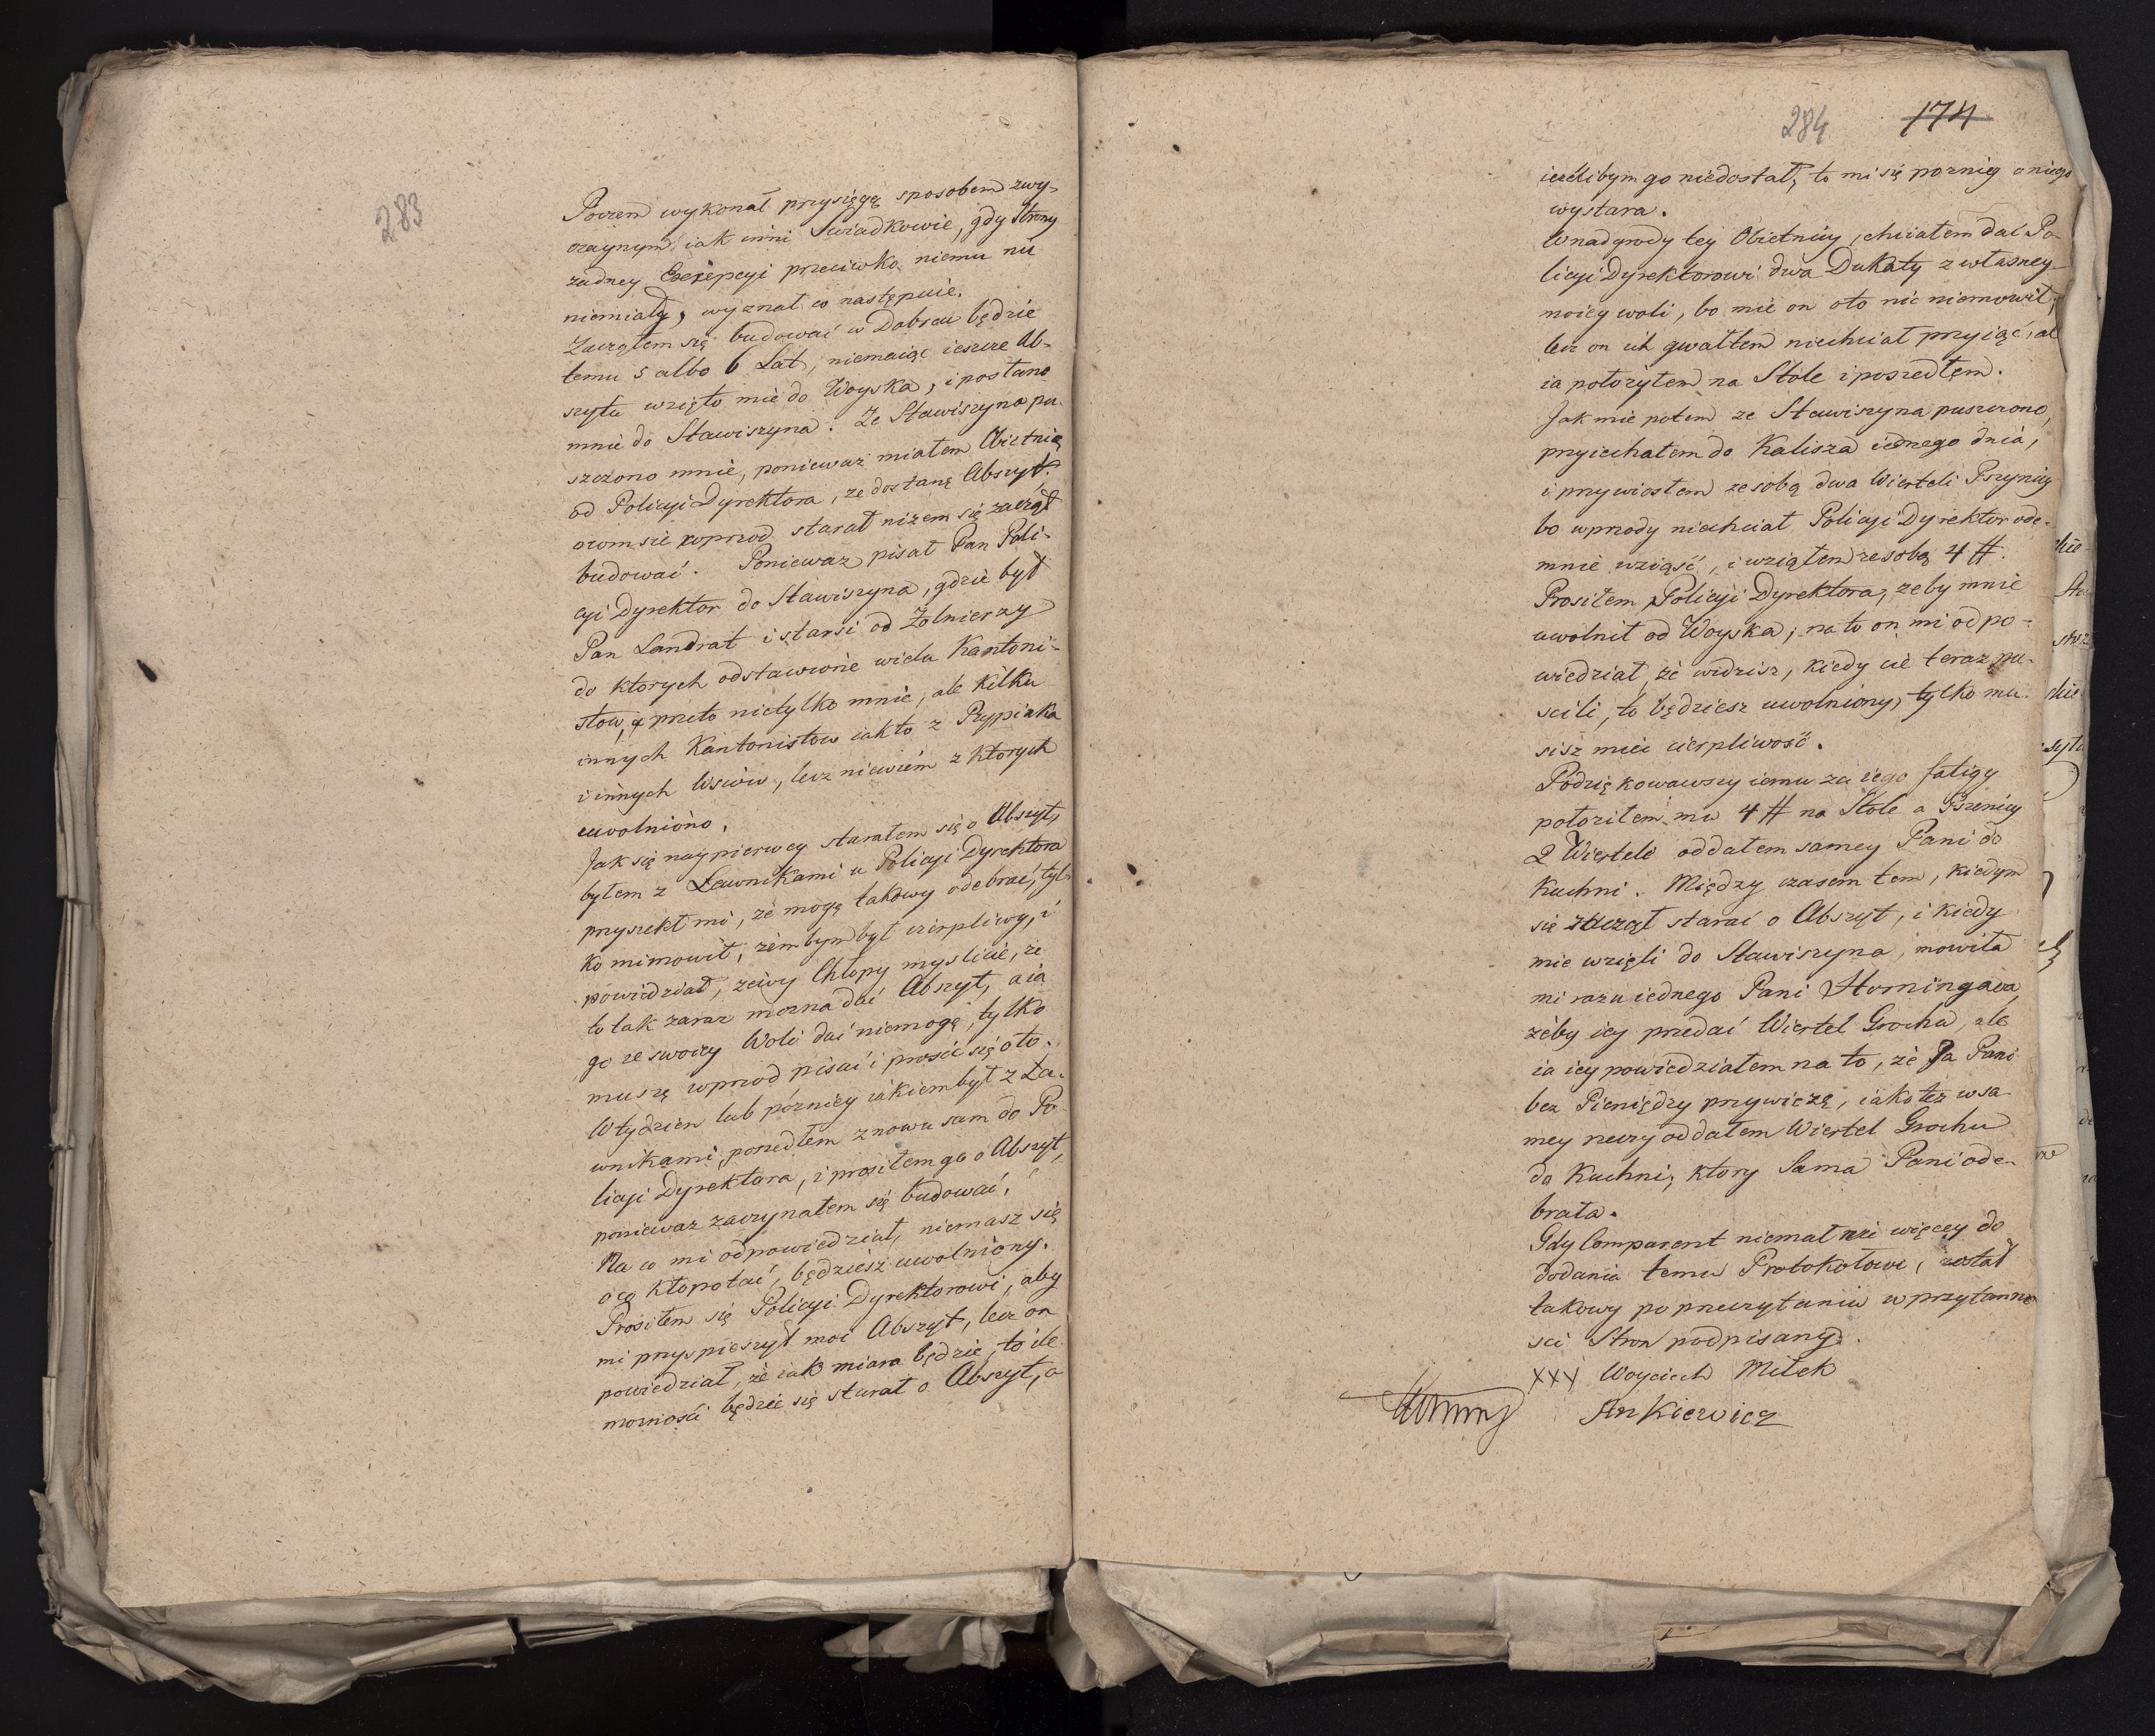 283
Poczem wykonał przysięgę sposobem zwy-
czaynym iak inni Swiadkowie, gdy Strony
zadney Excepcyi przeciwko niemu nie
niemiały, wyznał co następuie.
Zacząłem się budować w Dabrcu będzie
temu 5 albo 6 Lat, niemaiąc ieszcze Ab-
szytu wzięto mie do Woyska, i posłano
mnie do Stawiszyna. Ze Stawiszyna pu-
szczono mnie, poniewaz miałem Obietnię
od Policyi Dyrektora, ze dostanę Abszyt
oczom sie wprzod starał nizem się zaczął
budować. Poniewaz pisał Pan Poli-
cyi Dyrektor do Stawiszyna, gdzie był
Pan Landrat i starsi od Zołnierzy
do ktorych odstawione wielu Kantoni-
stow, przeto nietylko mnie, ale kilku
innych Kantonistow iak to z Przypiaka
i innych Wsiow, lecz niewiem z ktorych
uwolniono.
Jak się naypierwey starałem się o Abszyt,
byłem z Ławnikami u Policyi Dyrektora
przyrzekł mi, ze mogę takowy odebrać, tyl-
ko mi mowił, zem bym był cierpliwy, i
powiedział, ze wy Chłopy myslicie, ze
to tak zaraz mozna dać Abszyt, a ia
go ze swoiey Woli dać niemogę, tylko
muszę wprzod pisać i prosić się oto.
W tydzien lub pózniey iakiem był z Ła-
wnikami, poszedłem znowu sam do Po-
licyi Dyrektora, i prosiłem go o Abszyt,
poniewaz zaczynałem się budować,
Na co mi odpowiedział, niemasz się
o co kłopotać, będziesz uwolniony.
Prosiłem się Policyi Dyrektorowi, aby
mi przyspieszył moi Abszyt, lecz on
powiedział, ze iak miara będzie, to ile
moznosci będzie się starał o Abszyt, a
284 174
iezelibym go niedostał, to mi się pozniey o niego
wystara.
W nadgrody tey Obietnicy, chciałem dać Po-
licyi Dyrektorowi dwa Dukaty z własney
moiey woli, bo mie on oto nic niemowił,
lecz on ich gwałtem niechciał przyiąć, al
ia położyłem na Stole i poszedłem.
Jak mie potem ze Stawiszyna puszczono,
przyiechałem do Kalisza iednego dnia,
i przywiosłem ze sobą dwa Wierteli Pszynicy
bo wprzody niechciał Policyi Dyrektor ode-
mnie wziąść, i wziąłem ze sobą 4 #.
Prosiłem Policyi Dyrektora, zeby mnie
uwolnił od Woyska; na to on mi odpo-
wiedział, ze widzisz, kiedy cie teraz pu-
scili, to będziesz uwolniony, tylko mu-
sisz mieć cierpliwość.
Podziękowawszy iemu za iego fatigy
położiłem mu 4 # na Stole a Pszenicy
2 Wiertele oddałem samey Pani do
Kuchni. Między czasem tem, kiedym
się zaczął starać o Abszyt, i kiedy
mie wzięli do Stawiszyna, mowiła
mi razu iednego Pani Horningowa,
zeby iey przedać Wiertel Grochu, ale
ia iey powiedziałem na to, ze Ja Pani
bez Pieniędzy przywiezę, iakotez w sa-
mey rzeczy oddałem Wiertel Grochu
do Kuchni, ktory Sama Pani ode-
brała.
Gdy Comparent niemał nic więcey do
dodania temu Protokołowi, został
takowy po przeczytaniu w przytomno
sci Stron podpisany.
XXX Woyciech Miłek
Horning Ankiewicz